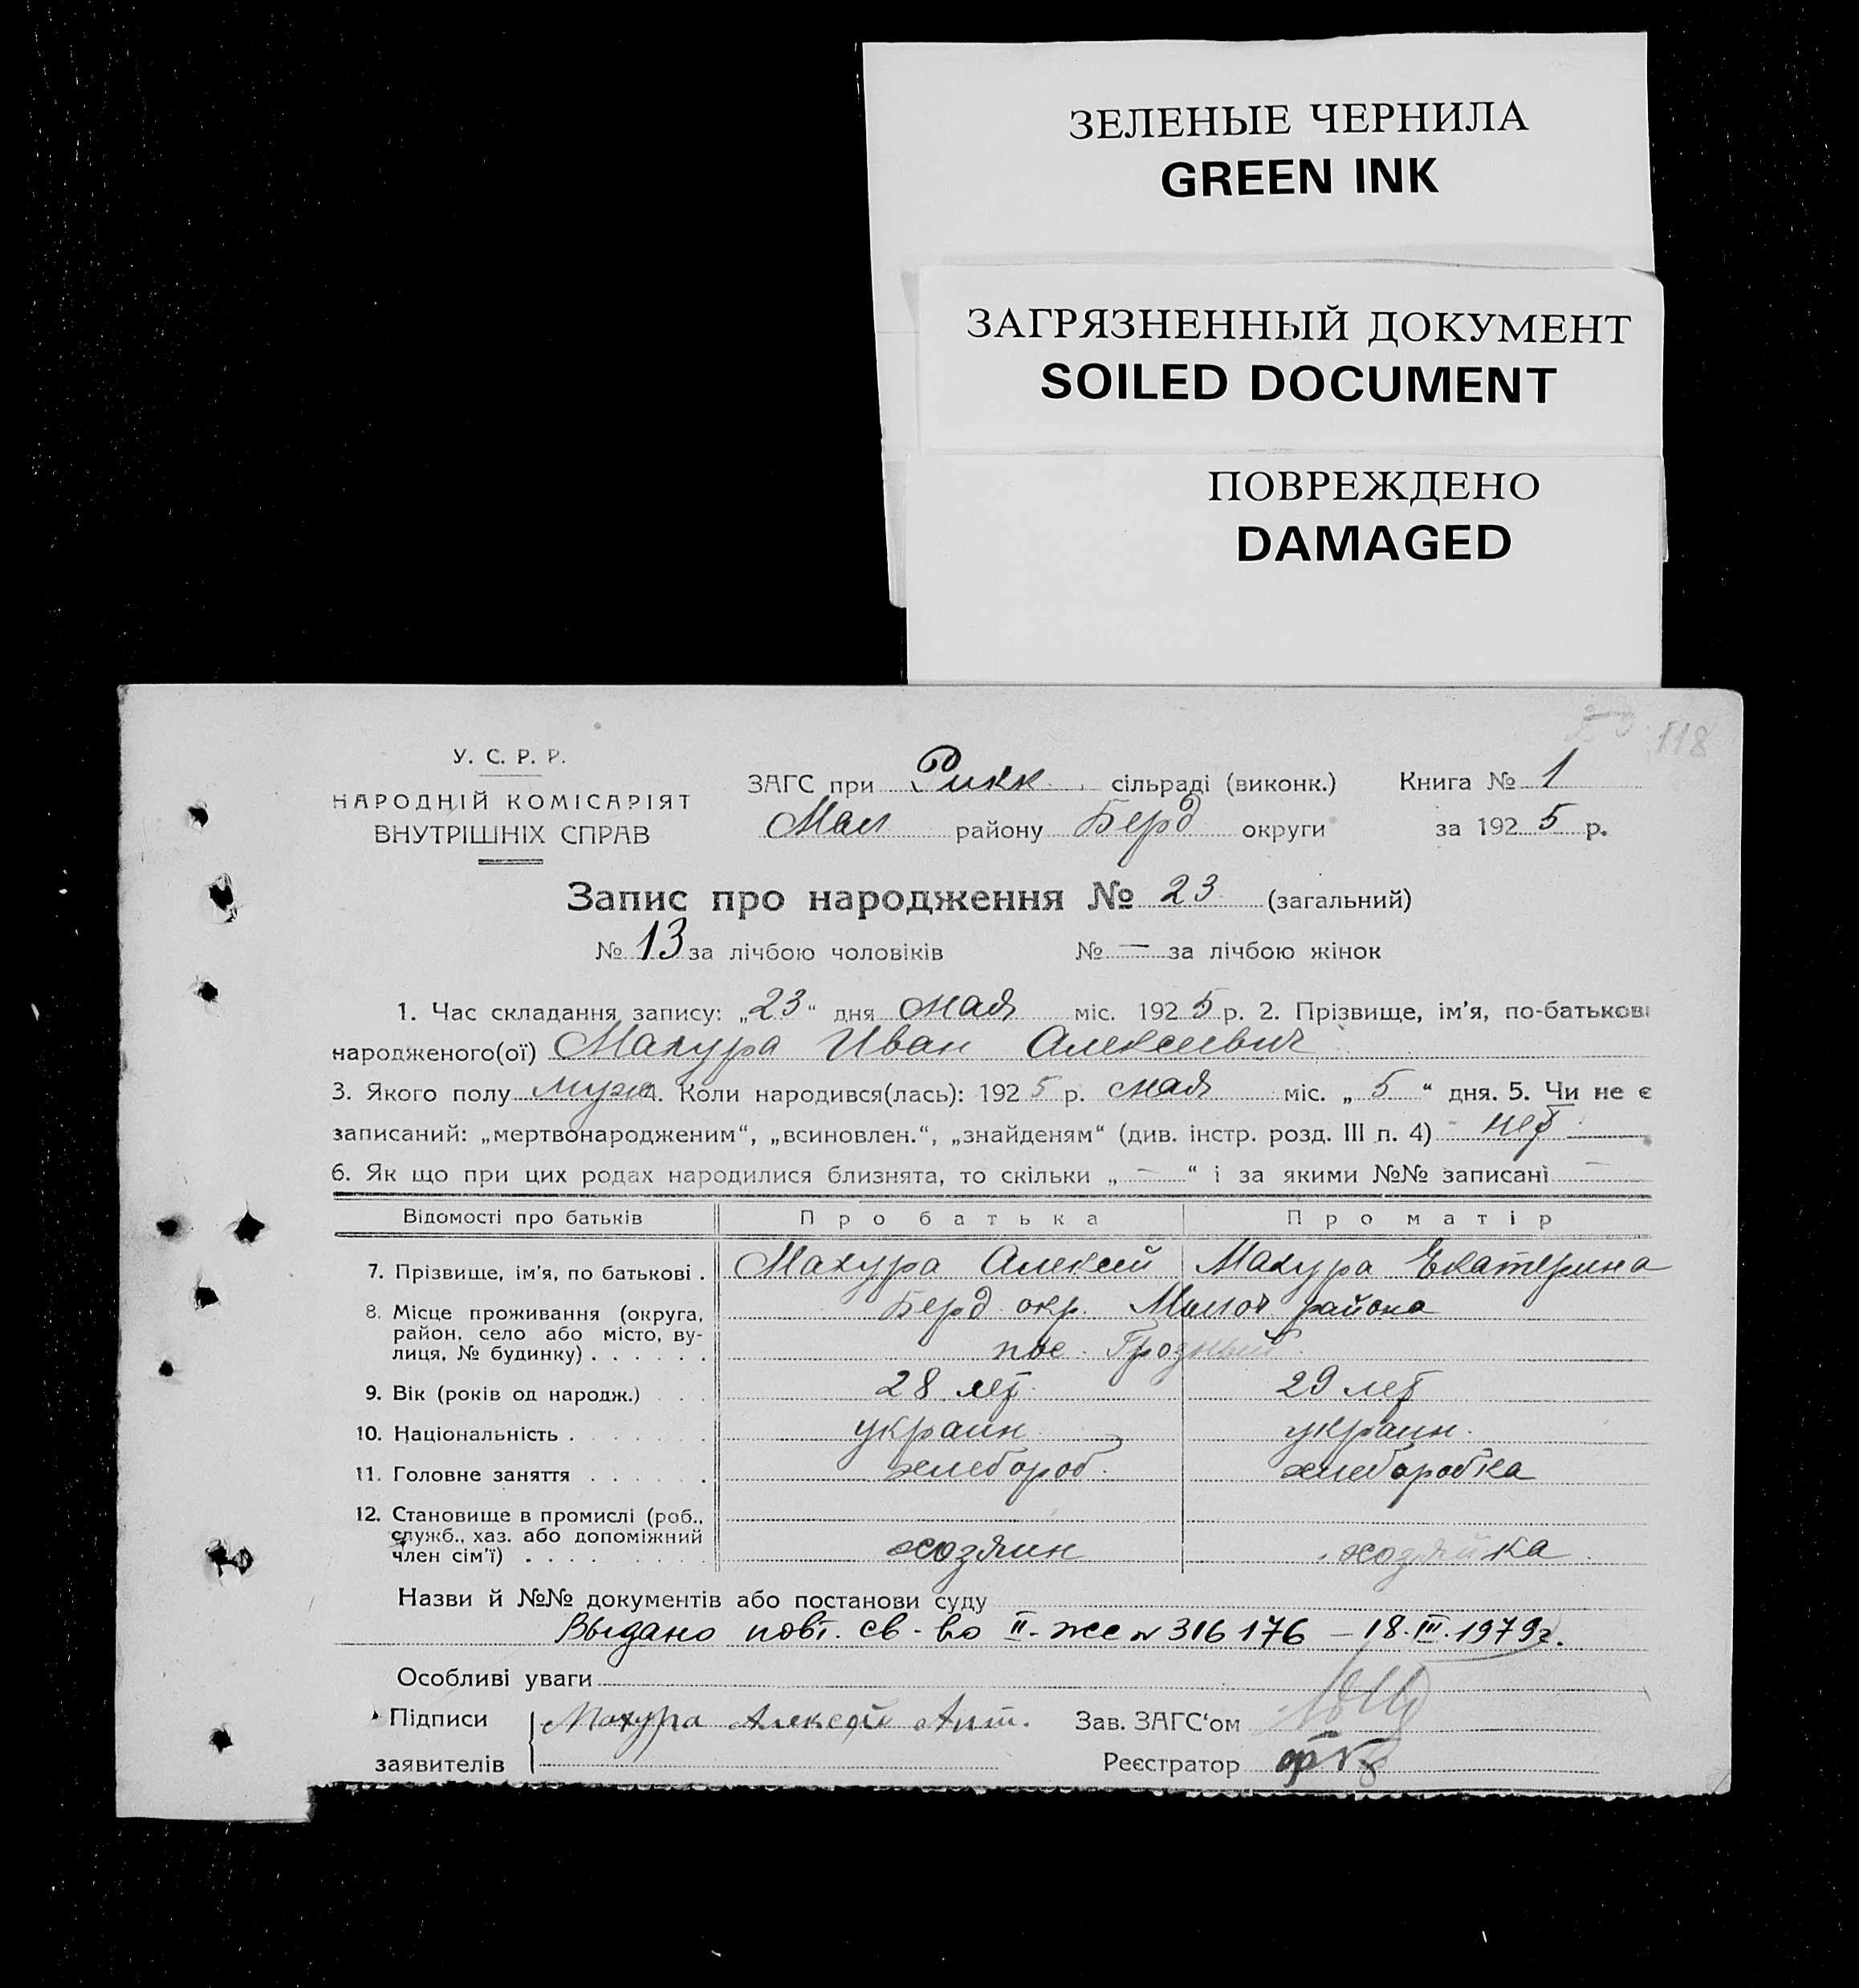 ЗЕЛЕНЫЕ ЧЕРНИЛА
GREEN INK
ЗАГРЯЗНЕННЫЙ ДОКУМЕНТ
SOILED DOCUMENT
ПОВРЕЖДЕНО
DAMAGED
118
У. С. Р. Р.
НАРОДНІЙ КОМІСАРІЯТ
ВНУТРІШНІХ СПРАВ
ЗАГС при Рикк сільраді (виконк.) Книга № 1
Мол району Берд округи за 1925 р.
Запис про народження № 23 (загальний)
№ 13 за лічбою чоловіків № — за лічбою жінок
1. Час складання запису: „23“ дня мая міс. 1925 р. 2. Прізвище, ім'я, по-батькові
народженого(ої) Махура Иван Алексеевич
3. Якого полу муж 4. Коли народився(лась): 1925 р. мая міс. „5“ дня. 5. Чи не є
записаний: „мертвонародженим“, „всиновлен.“, „знайденям“ (див. інстр. розд. III п. 4) нет
6. Як що при цих родах народилися близнята, то скільки „—“ і за якими №№ записані —
Відомості про батьків Про батька Про матір
7. Прізвище, ім'я, по батькові . Махура Алексей Махура Екатерина
8. Місце проживання (округа, район, село або місто, вулиця, № будинку) . . . . . . Берд окр. Молоч района
пос. Грозный
9. Вік (років од народж.) . . 28 лет 29 лет
10. Національність . . . . . . . украин украин.
11. Головне заняття . . . . . . хлебороб. хлеборобка
12. Становище в промислі (роб., служб., хаз. або допоміжний член сім'ї) . . . . хозяин хозяйка
Назви й №№ документів або постанови суду
Выдано повт. св-во II-жс № 316176 – 18.III.1979г.
Особливі уваги
Підписи Махура Алексей Ант. Зав. ЗАГС'ом
заявителів Реєстратор